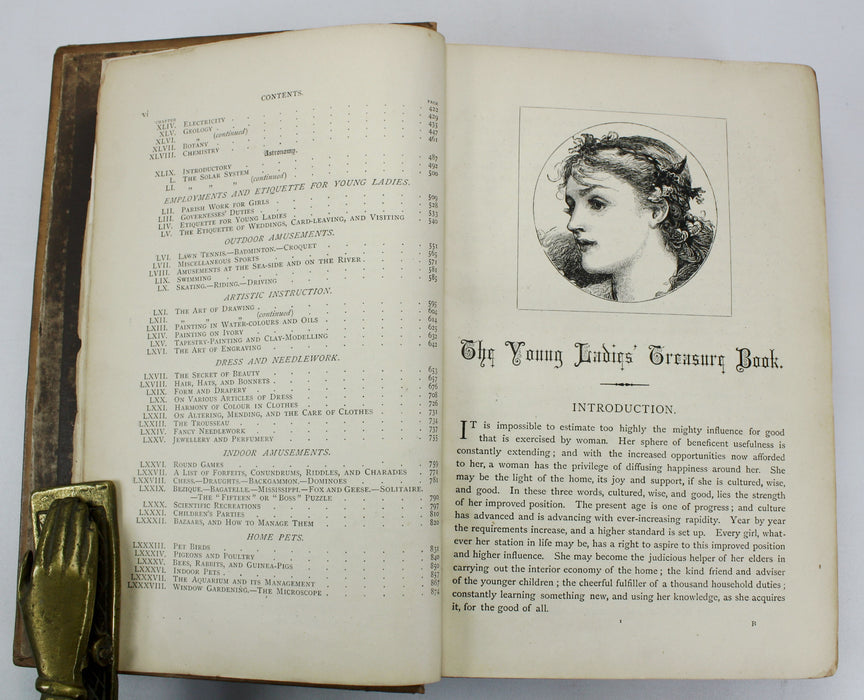 vi
CONTENTS.
CHAPTER PAGE
XLIV. ELECTRICITY 422
XLV. GEOLOGY 429
XLVI. " (continued) 435
XLVII. BOTANY 447
XLVIII. CHEMISTRY 461
Astronomy.
XLIX. INTRODUCTORY 487
L. THE SOLAR SYSTEM 492
LI. " " " (continued) 500
EMPLOYMENTS AND ETIQUETTE FOR YOUNG LADIES.
LII. PARISH WORK FOR GIRLS 509
LIII. GOVERNESSES' DUTIES 528
LIV. ETIQUETTE FOR YOUNG LADIES 533
LV. THE ETIQUETTE OF WEDDINGS, CARD-LEAVING, AND VISITING 540
OUTDOOR AMUSEMENTS.
LVI. LAWN TENNIS.—BADMINTON.—CROQUET 551
LVII. MISCELLANEOUS SPORTS 565
LVIII. AMUSEMENTS AT THE SEA-SIDE AND ON THE RIVER 571
LIX. SWIMMING 581
LX. SKATING.—RIDING.—DRIVING 585
ARTISTIC INSTRUCTION.
LXI. THE ART OF DRAWING 595
LXII. " " " (continued) 604
LXIII. PAINTING IN WATER-COLOURS AND OILS 614
LXIV. PAINTING ON IVORY 625
LXV. TAPESTRY-PAINTING AND CLAY-MODELLING 632
LXVI. THE ART OF ENGRAVING 642
DRESS AND NEEDLEWORK.
LXVII. THE SECRET OF BEAUTY 653
LXVIII. HAIR, HATS, AND BONNETS 657
LXIX. FORM AND DRAPERY 676
LXX. ON VARIOUS ARTICLES OF DRESS 708
LXXI. HARMONY OF COLOUR IN CLOTHES 726
LXXII. ON ALTERING, MENDING, AND THE CARE OF CLOTHES 731
LXXIII. THE TROUSSEAU 734
LXXIV. FANCY NEEDLEWORK 737
LXXV. JEWELLERY AND PERFUMERY 755
INDOOR AMUSEMENTS.
LXXVI. ROUND GAMES 759
LXXVII. A LIST OF FORFEITS, CONUNDRUMS, RIDDLES, AND CHARADES 771
LXXVIII. CHESS.—DRAUGHTS.—BACKGAMMON.—DOMINOES 781
LXXIX. BEZIQUE.—BAGATELLE.—MISSISSIPPI.—FOX AND GEESE.—SOLITAIRE.
—THE "FIFTEEN" OR "BOSS" PUZZLE 790
LXXX. SCIENTIFIC RECREATIONS 797
LXXXI. CHILDREN'S PARTIES 810
LXXXII. BAZAARS, AND HOW TO MANAGE THEM 820
HOME PETS.
LXXXIII. PET BIRDS 831
LXXXIV. PIGEONS AND POULTRY 840
LXXXV. BEES, RABBITS, AND GUINEA-PIGS 850
LXXXVI. INDOOR PETS 857
LXXXVII. THE AQUARIUM AND ITS MANAGEMENT 867
LXXXVIII. WINDOW GARDENING.—THE MICROSCOPE 874
The Young Ladies' Treasure Book.
INTRODUCTION.
IT is impossible to estimate too highly the mighty influence for good
that is exercised by woman. Her sphere of beneficent usefulness is
constantly extending; and with the increased opportunities now afforded
to her, a woman has the privilege of diffusing happiness around her. She
may be the light of the home, its joy and support, if she is cultured, wise,
and good. In these three words, cultured, wise, and good, lies the strength
of her improved position. The present age is one of progress; and culture
has advanced and is advancing with ever-increasing rapidity. Year by year
the requirements increase, and a higher standard is set up. Every girl, what-
ever her station in life may be, has a right to aspire to this improved position
and higher influence. She may become the judicious helper of her elders in
carrying out the interior economy of the home; the kind friend and adviser
of the younger children; the cheerful fulfiller of a thousand household duties;
constantly learning something new, and using her knowledge, as she acquires
it, for the good of all.
1 B